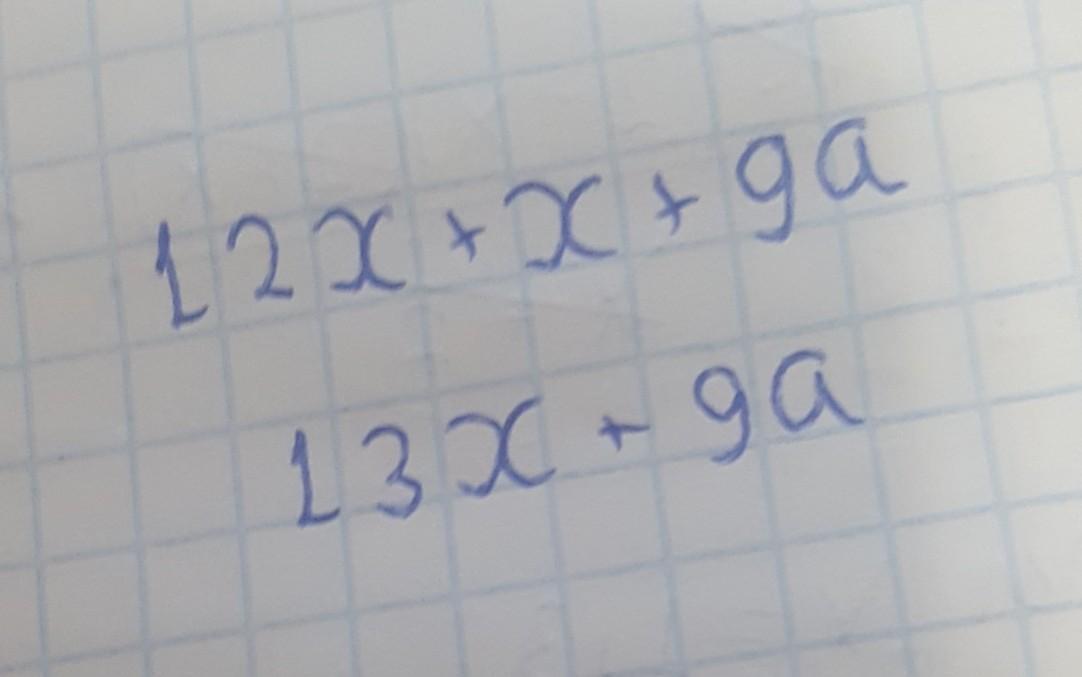 12x + x + 9a
13x + 9a